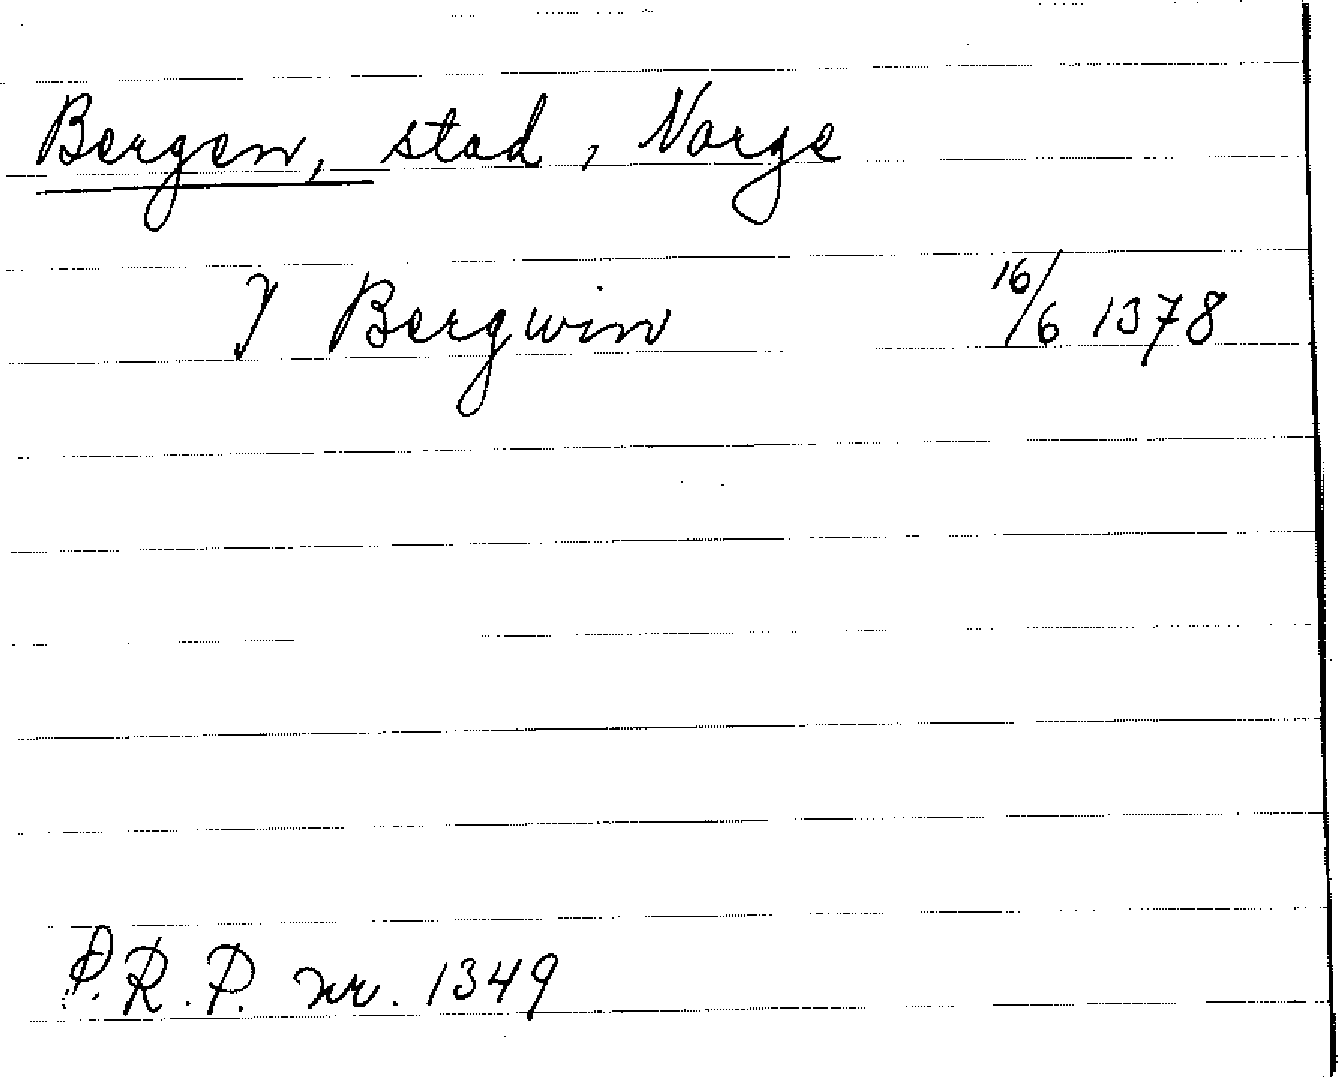 Bergen, stad, Norge
J Bergwin 16/6 1378
P.R.P. nr. 1349